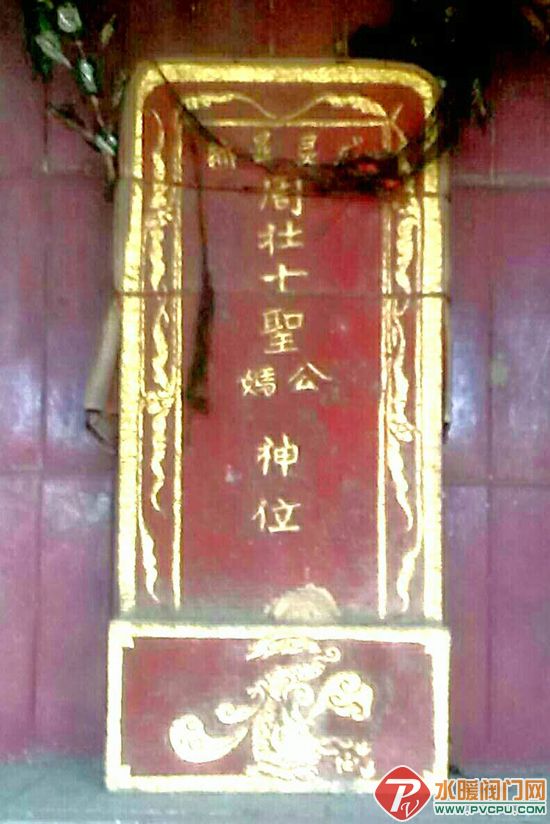 周社十聖
公媽
神位
水暖阀门网
WWW.PVCPU.COM